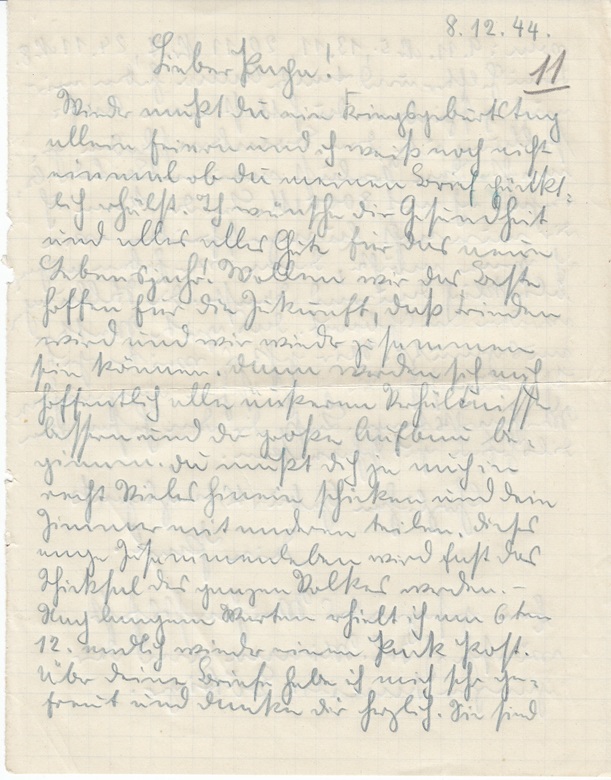 8.12.44.
11
Lieber Papa!
Wieder mußt du ein Kriegsgeburtstag
allein feiern und ich weiß noch nicht
einmal ob du meinen Brief pünkt-
lich erhälst. Ich wünsche dir Gesundheit
und alles alles Gute für das neue
Lebensjahr! Wollen wir das Beste
hoffen für die Zukunft, daß Frieden
wird und wir wieder zusammen
sein können. Dann werden sich auch
hoffentlich alle äußeren Verhältnisse
bessern und der große Aufbau be-
ginnen. Du mußt dich ja auch in
recht Vieles hinein schicken und dein
Zimmer mit anderen teilen. Dieses
enge Zusammenleben wird fast das
Schicksal des ganzen Volkes werden. –
Nach langem Warten erhielt ich am 6ten
12. endlich wieder einen Pack Post.
Über deine Briefe habe ich mich sehr ge-
freut und danke dir herzlich. Sie sind